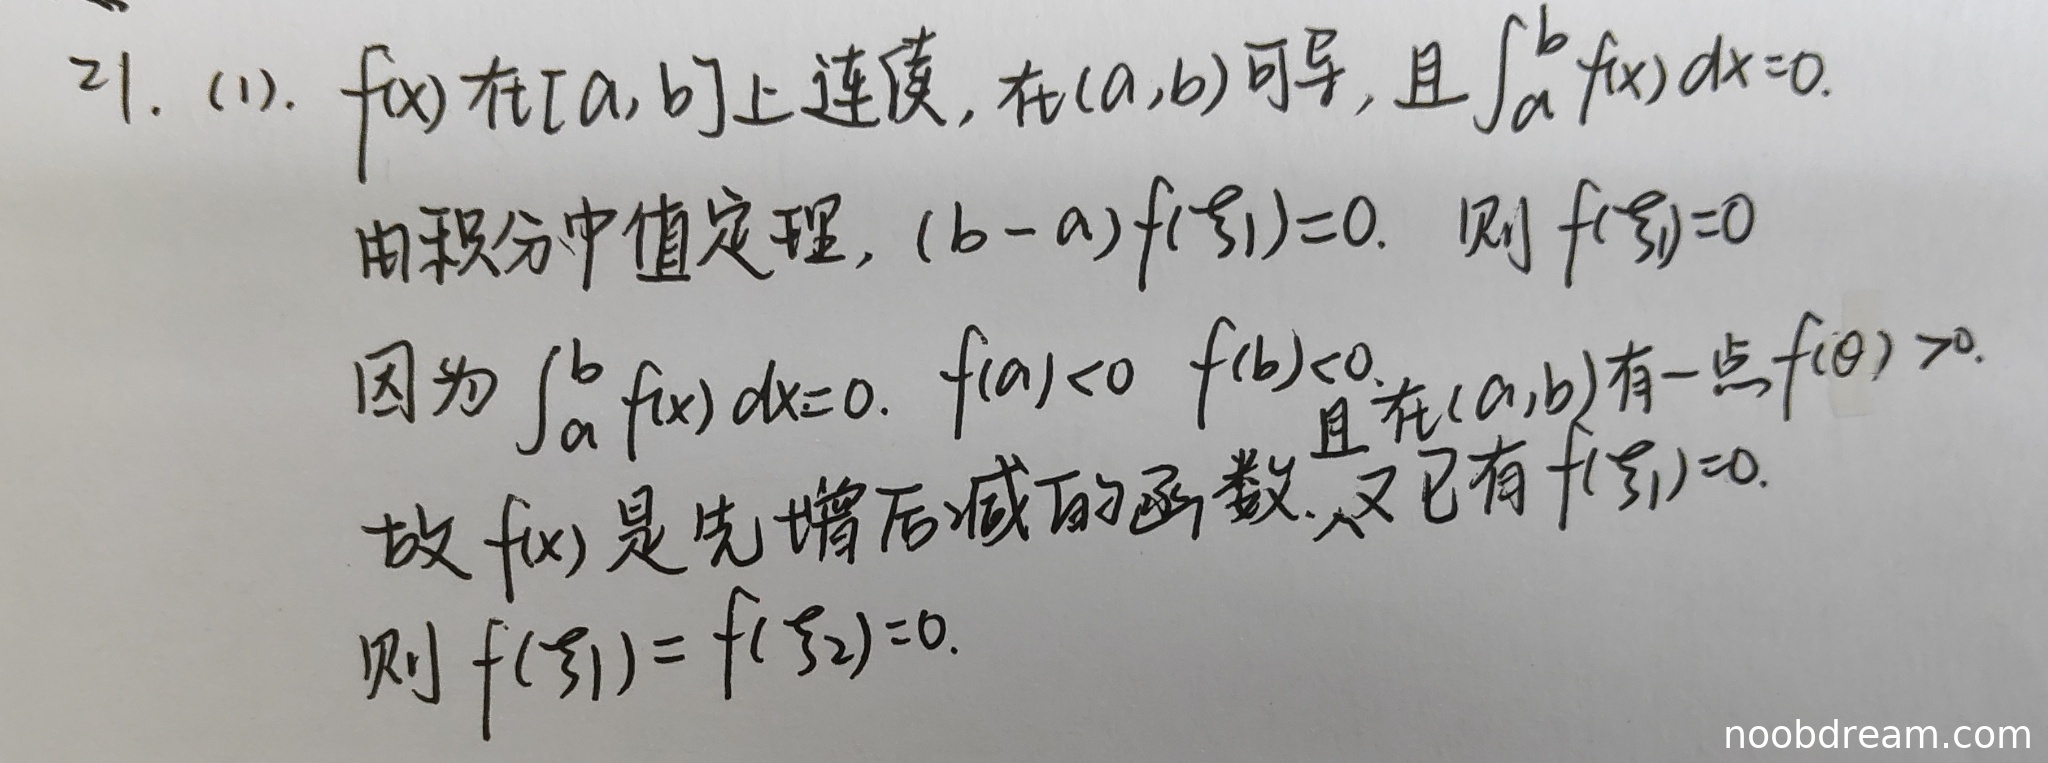 21. (1). f(x)在[a,b]上连续,在(a,b)可导,且∫_a^b f(x)dx=0.
由积分中值定理,(b-a)f(ξ1)=0. 则f(ξ1)=0
因为∫_a^b f(x)dx=0. f(a)<0 f(b)<0.
且在(a,b)有一点f(θ)>0.
故f(x)是先增后减的函数.又已有f(ξ1)=0.
则f(ξ1)=f(ξ2)=0.
noobdream.com